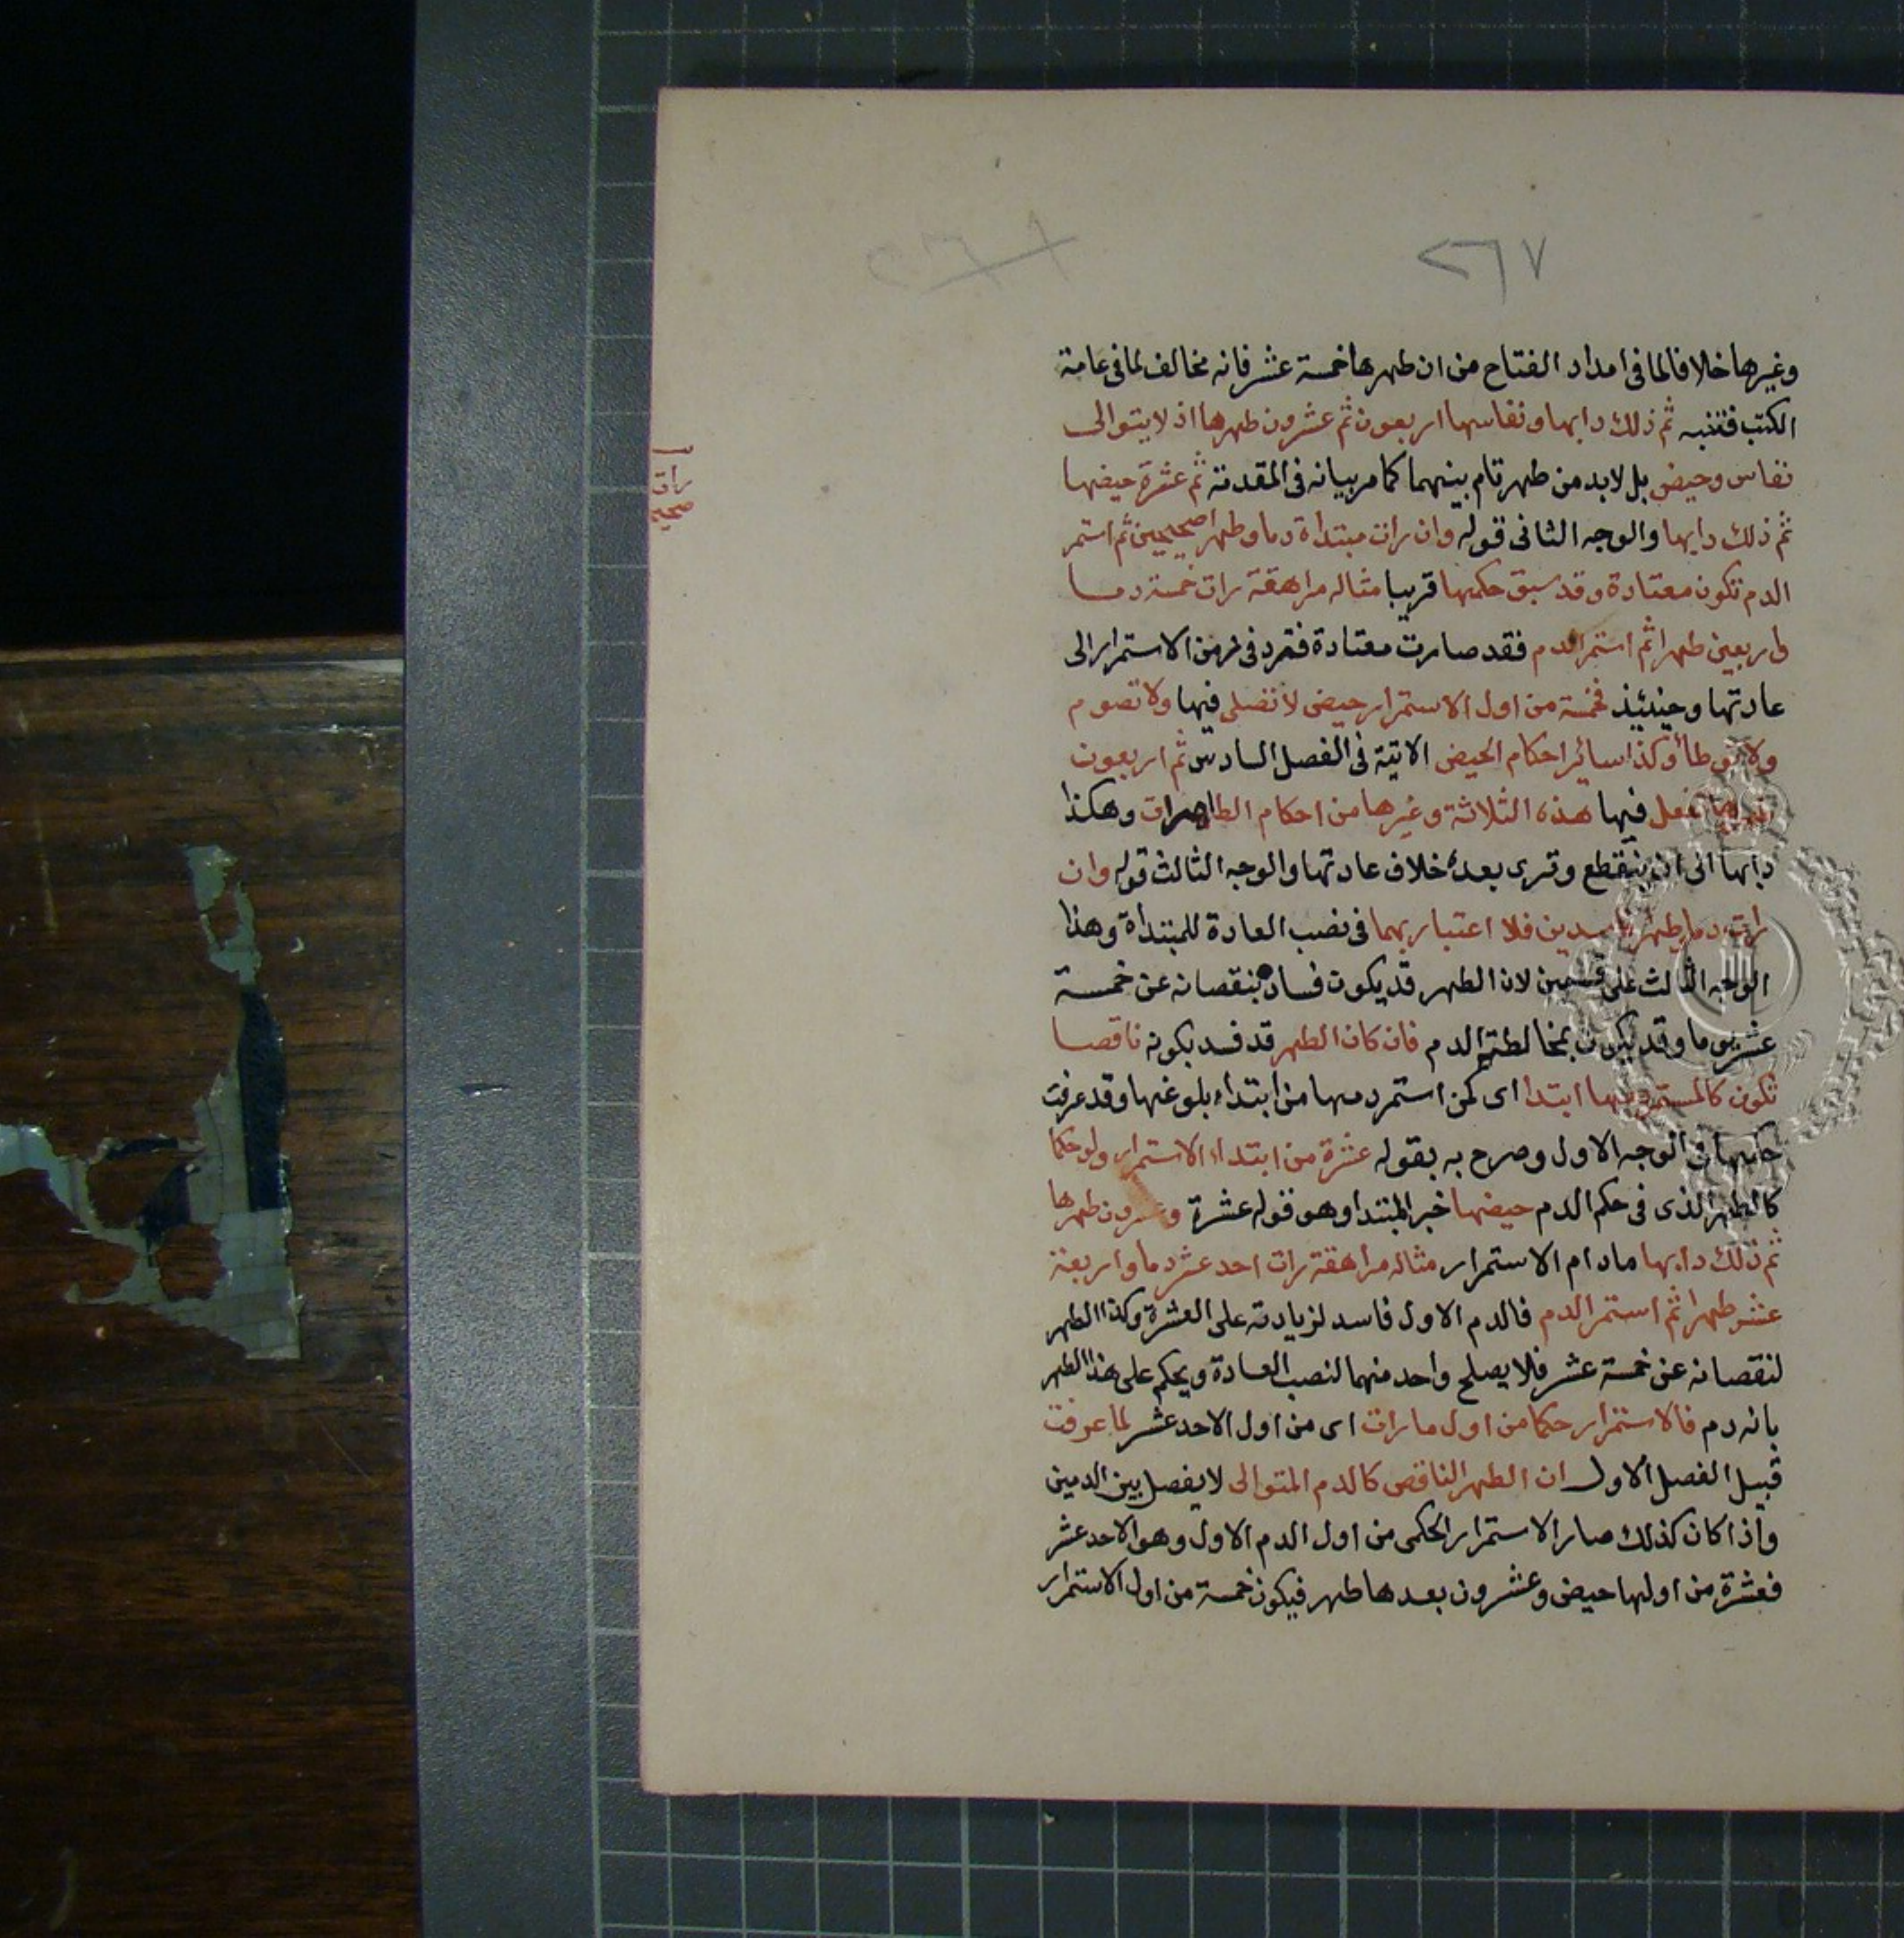 ٢٦٧
وغيرها خلافا لما فى امداد الفتاح من ان طهرها خمسة عشر فانه مخالف لما فى عامة
الكتب فتنبه ثم ذلك دابها ونفاسها اربعون ثم عشرون طهرها اذ لا يتوالى
نفاس وحيض بل لابد من طهر تام بينهما كما مر بيانه فى المقدمة ثم عشرة حيضها
ثم ذلك دابها والوجه الثانى قوله وان رات مبتداة دما وطهرا صحيحين ثم استمر
الدم تكون معتادة وقد سبق حكمها قريبا مثاله مراهقة رات خمسة دما
واربعين طهرا ثم استمر الدم فقد صارت معتادة فترد فى زمن الاستمرار الى
عادتها وحينئذ فخمسة من اول الاستمرار حيض لا تصلى فيها ولا تصوم
ولا توطأ وكذا سائر احكام الحيض الاتية فى الفصل السادس ثم اربعون
طهرها تفعل فيها هذه الثلاثة وغيرها من احكام الطاهرات وهكذا
دابها الى ان ينقطع وترى بعده خلاف عادتها والوجه الثالث قوله وان
رات دما وطهرا فاسدين فلا اعتبار بهما فى نصب العادة للمبتداة وهذا
الوجه الثالث على قسمين لان الطهر قد يكون فساده بنقصانه عن خمسة
عشر يوما وقد يكون بمخالطته الدم فان كان الطهر قد فسد بكونه ناقصا
تكون كالمستمر دمها ابتدا اى كمن استمر دمها من ابتداء بلوغها وقد عرفت
حكمها فى الوجه الاول وصرح به بقوله عشرة من ابتداء الاستمرار ولو حكما
كالطهر الذى فى حكم الدم حيضها خبر المبتدا وهو قوله عشرة وعشرون طهرها
ثم ذلك دابها مادام الاستمرار مثاله مراهقة رات احد عشر دما واربعة
عشر طهرا ثم استمر الدم فالدم الاول فاسد لزيادته على العشرة وكذا الطهر
لنقصانه عن خمسة عشر فلا يصلح واحد منهما لنصب العادة ويحكم على هذا الطهر
بانه دم فالاستمرار حكما من اول ما رات اى من اول الاحد عشر لما عرفت
قبيل الفصل الاول ان الطهر الناقص كالدم المتوالى لا يفصل بين الدمين
واذا كان كذلك صار الاستمرار الحكمى من اول الدم الاول وهو الاحد عشر
فعشرة من اولها حيض وعشرون بعدها طهر فيكون خمسة من اول الاستمرار
رات